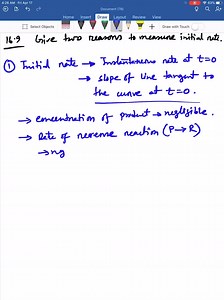 4:26 AM Fri Apr 17
Document (16)
Home Insert Draw Layout Review View
Draw with Touch
16.9 Give two reasons to measure initial rate.
① Initial rate → Instantaneous rate at t=0
→ slope of line tangent to
the curve at t=0.
→ concentration of product → negligible.
→ Rate of reverse reaction (P→R)
→ ng